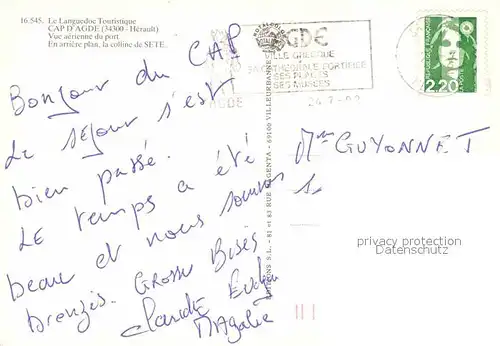 16.545. Le Languedoc Touristique
CAP D'AGDE (34300 - Hérault)
Vue aérienne du port.
En arrière plan, la colline de SETE.
Bonjour du CAP
Le séjour s'est
bien passé.
Le temps a été
beau et nous sommes
bronzés. Grosses Bises
Claude
Magalie
AGDE
VILLE GRECQUE
SA CATHEDRALE FORTIFIEE
SES PLAGES
SES MUSEES
AGDE
REPUBLIQUE FRANÇAISE
2,20
S.L. - 81 et 83 RUE MAGENTA - 69100 VILLEURBANNE
GUYONNET
privacy protection
Datenschutz